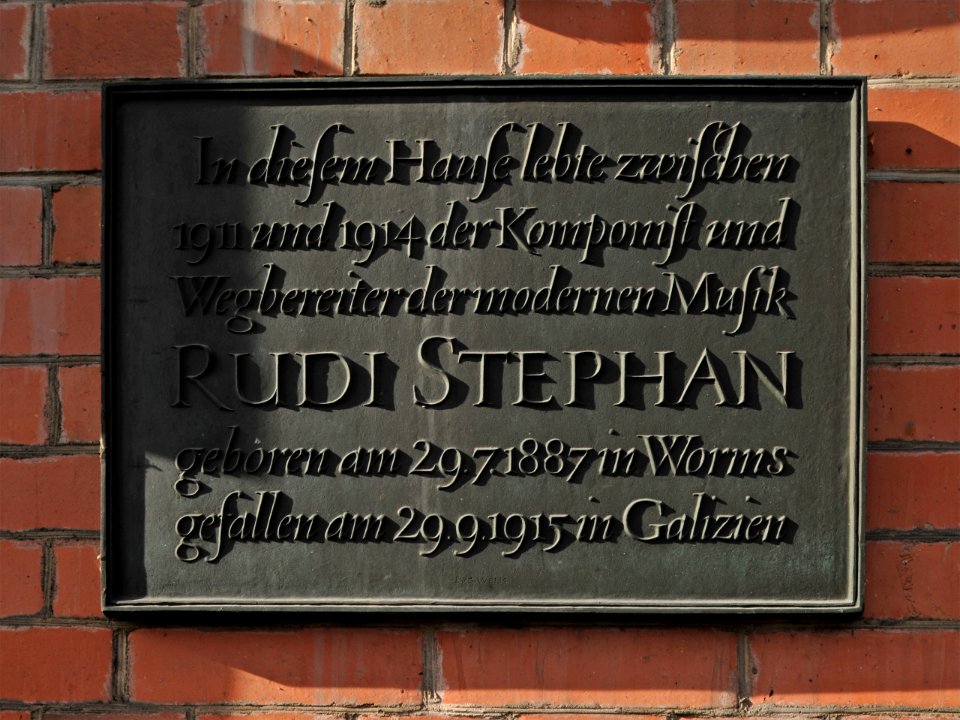 In dieſem Hauſe lebte zwiſchen
1911 und 1914 der Komponiſt und
Wegbereiter der modernen Muſik
RUDI STEPHAN
geboren am 29.7.1887 in Worms
gefallen am 29.9.1915 in Galizien